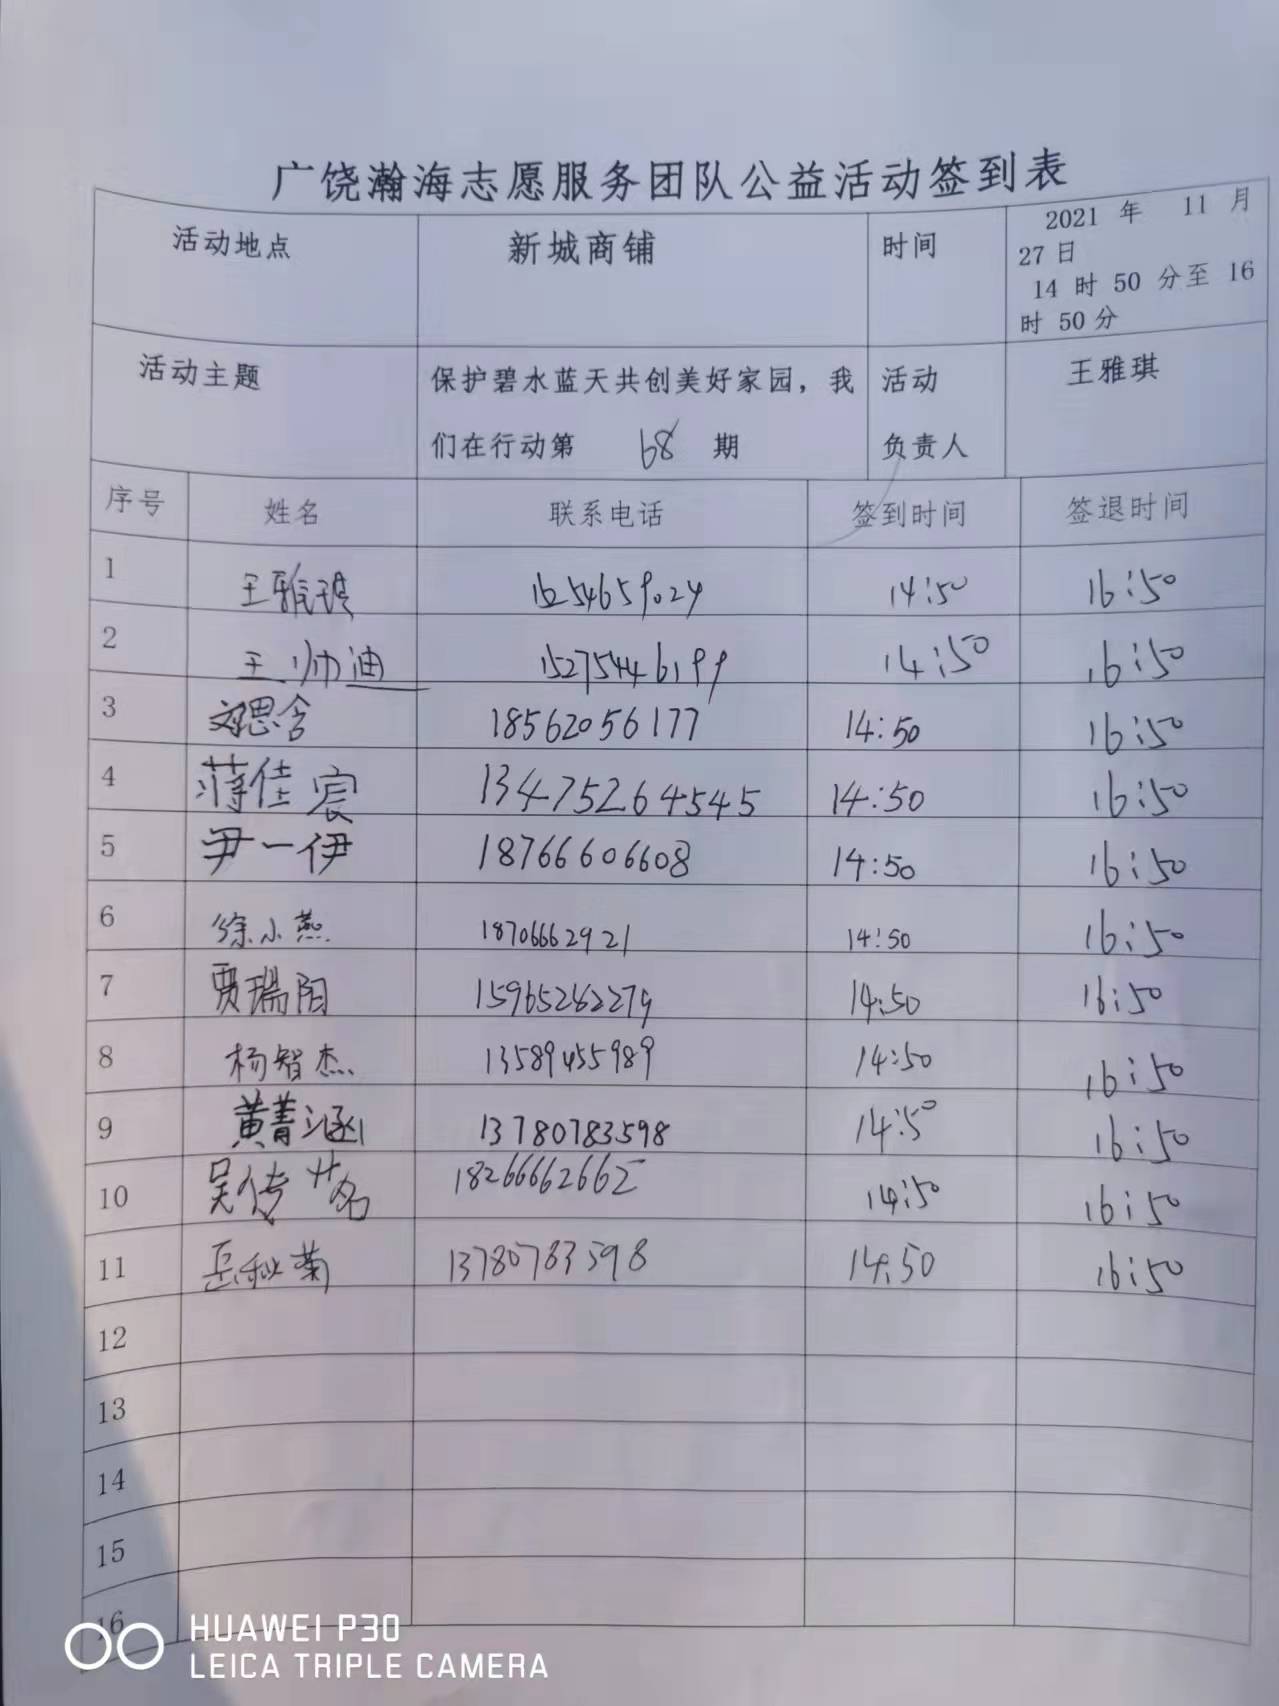 广饶瀚海志愿服务团队公益活动签到表
活动地点 新城商铺 时间 2021 年 11 月
27 日
14 时 50 分至 16
时 50 分
活动主题 保护碧水蓝天共创美好家园，我 活动 王雅琪
们在行动第 68 期 负责人
序号 姓名 联系电话 签到时间 签退时间
1 王雅琪 15254659024 14:50 16:50
2 王帅迪 15275446199 14:50 16:50
3 刘思含 18562056177 14:50 16:50
4 蒋佳宸 13475264545 14:50 16:50
5 尹一伊 18766606608 14:50 16:50
6 徐小燕 18706662921 14:50 16:50
7 贾瑞阳 15965262279 14:50 16:50
8 杨智杰 13589455989 14:50 16:50
9 黄菁涵 13780783598 14:50 16:50
10 吴传茗 18266662662 14:50 16:50
11 岳秋菊 13780783598 14:50 16:50
12
13
14
15
16
HUAWEI P30
LEICA TRIPLE CAMERA